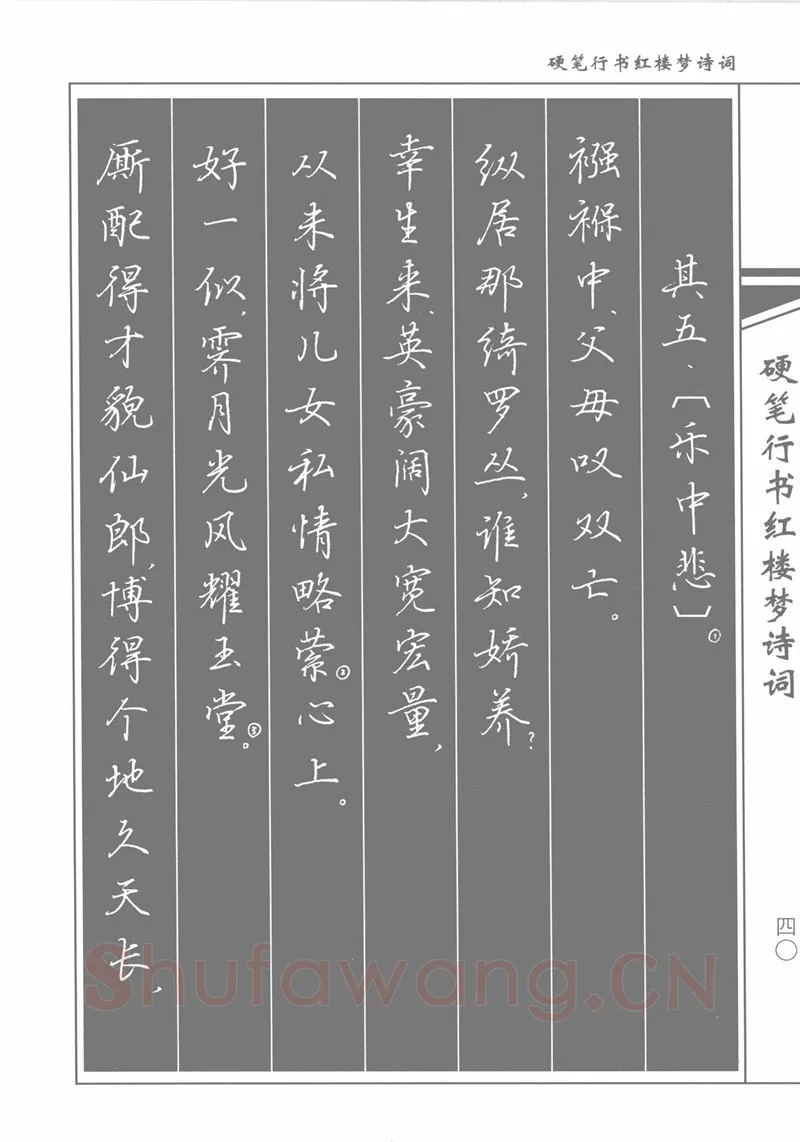 硬笔行书红楼梦诗词
其五·〔乐中悲〕①
襁褓中、父母叹双亡。
纵居那绮罗丛,谁知娇养?
幸生来、英豪阔大宽宏量,
从未将儿女私情略萦②心上。
好一似,霁月光风耀玉堂③。
厮配得才貌仙郎,博得个地久天长,
硬笔行书红楼梦诗词
四〇
Shufawang.CN